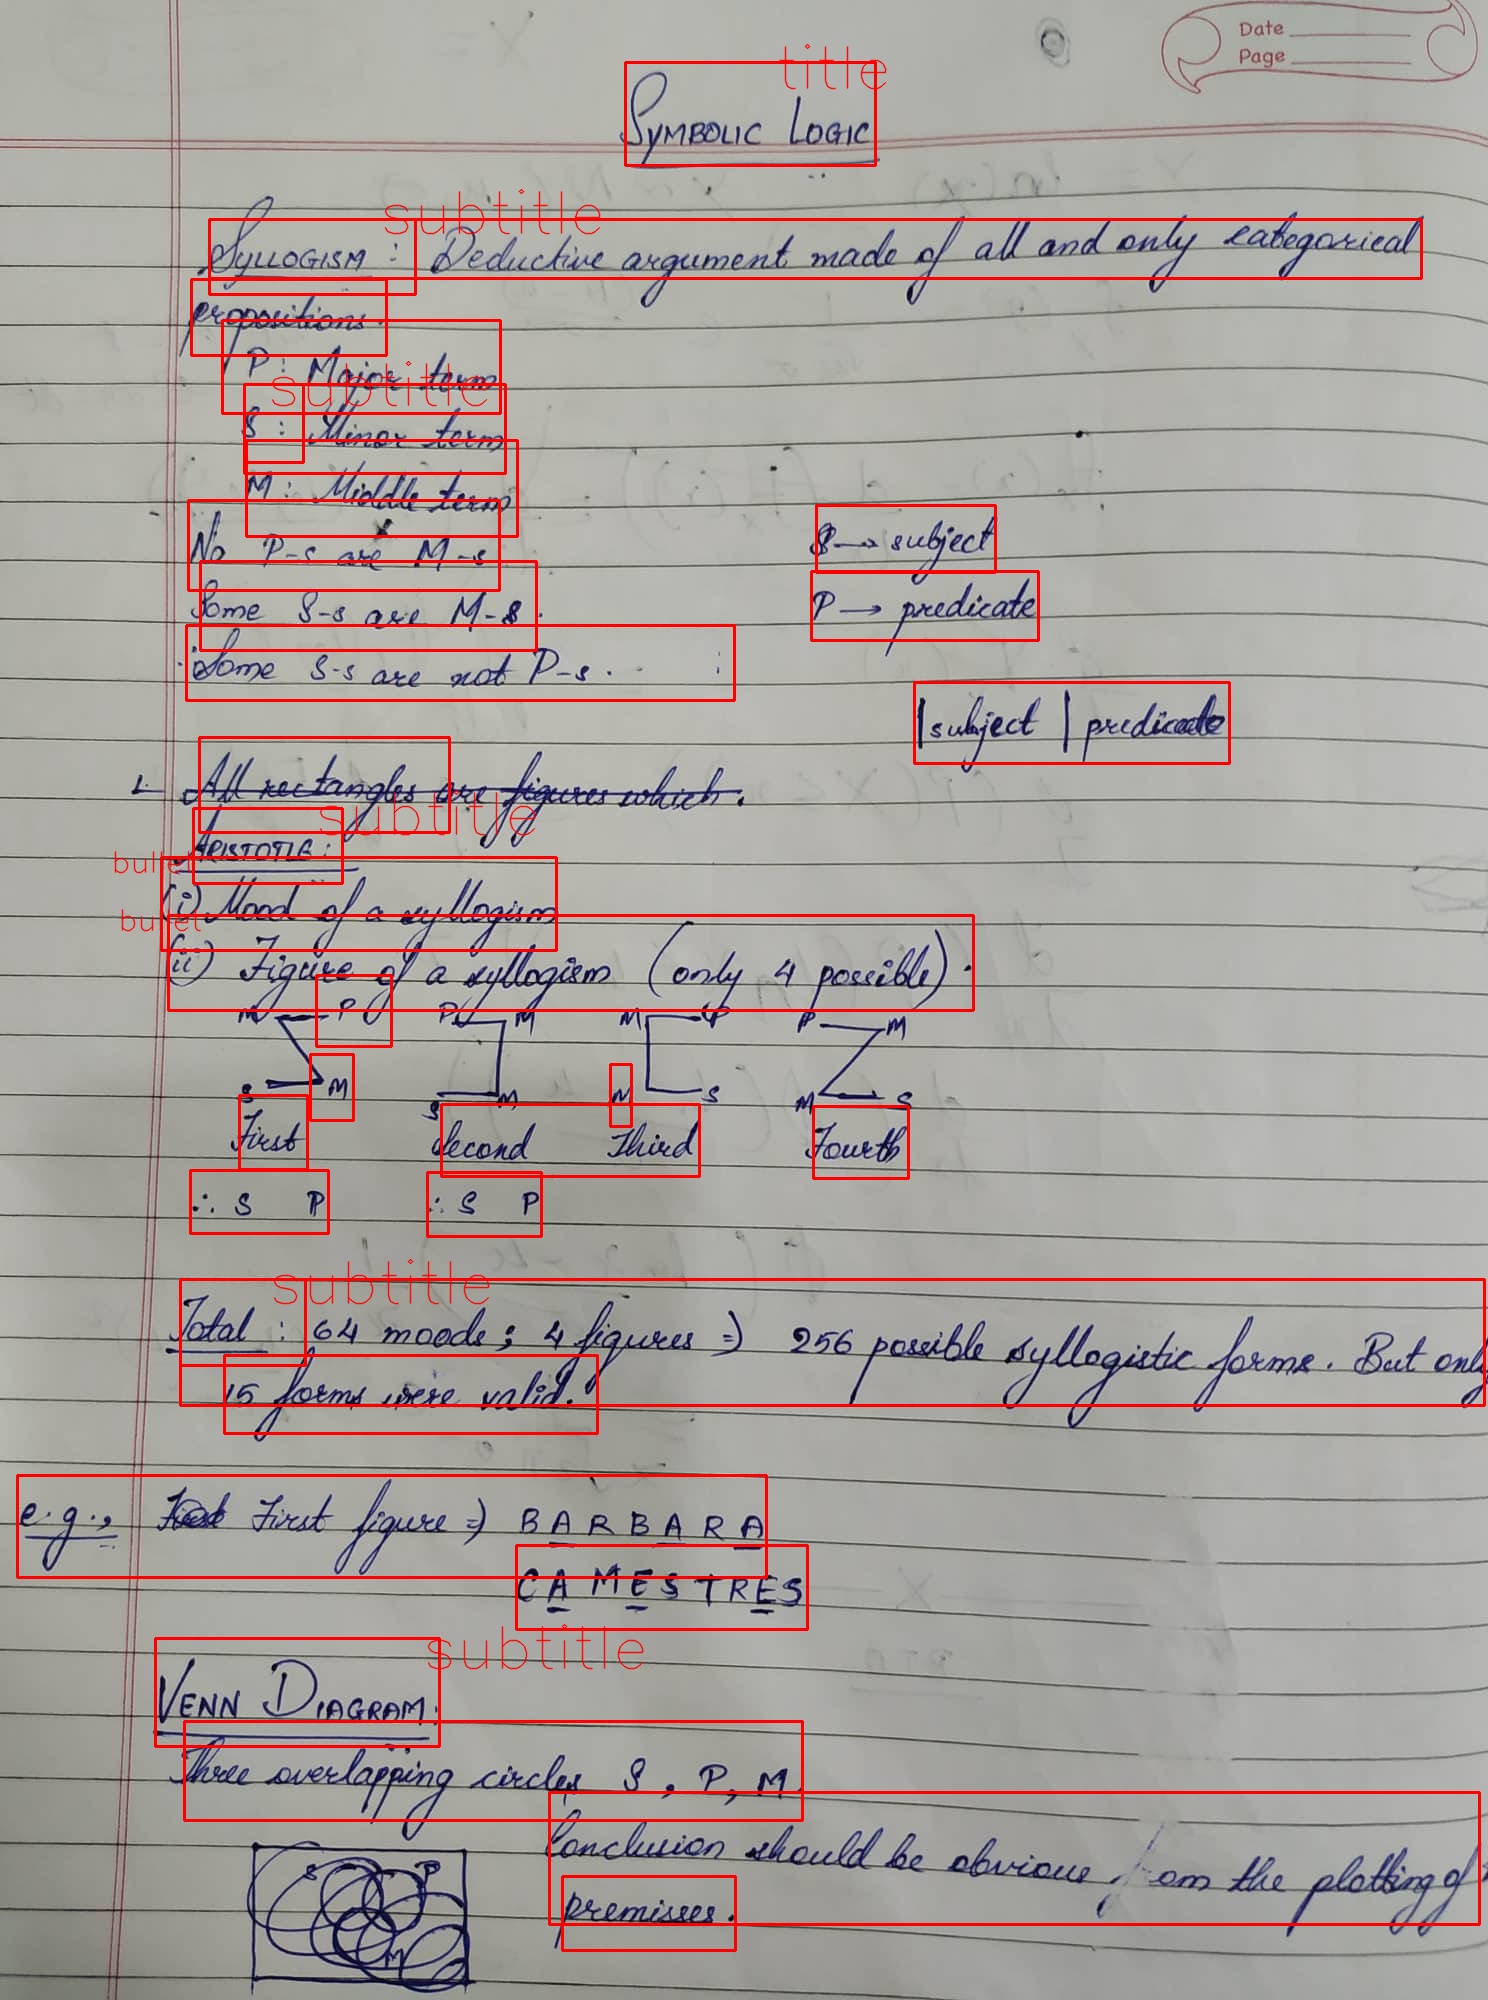 Date
Page
title
SYMBOLIC LOGIC
subtitle
SYLLOGISM : Deductive argument made of all and only categorical
propositions.
P : Major term
subtitle
S : Minor term
M : Middle term
No P-s are M-s
S → subject
Some S-s are M-s.
P → predicate
∴ Some S-s are not P-s.
| subject | predicate
1. All rectangles are figures which.
subtitle
ARISTOTLE :
bullet
(i) Mood of a syllogism
bullet
(ii) Figure of a syllogism (only 4 possible).
M P P M M P P M
S M S M M S M S
First Second Third Fourth
∴ S P ∴ S P
subtitle
Total : 64 moods; 4 figures ⇒ 256 possible syllogistic forms. But only
15 forms were valid.
e.g., First figure ⇒ BARBARA
CAMESTRES
subtitle
VENN DIAGRAM:
Three overlapping circles S, P, M.
Conclusion should be obvious from the plotting of
premisses.
S P
M